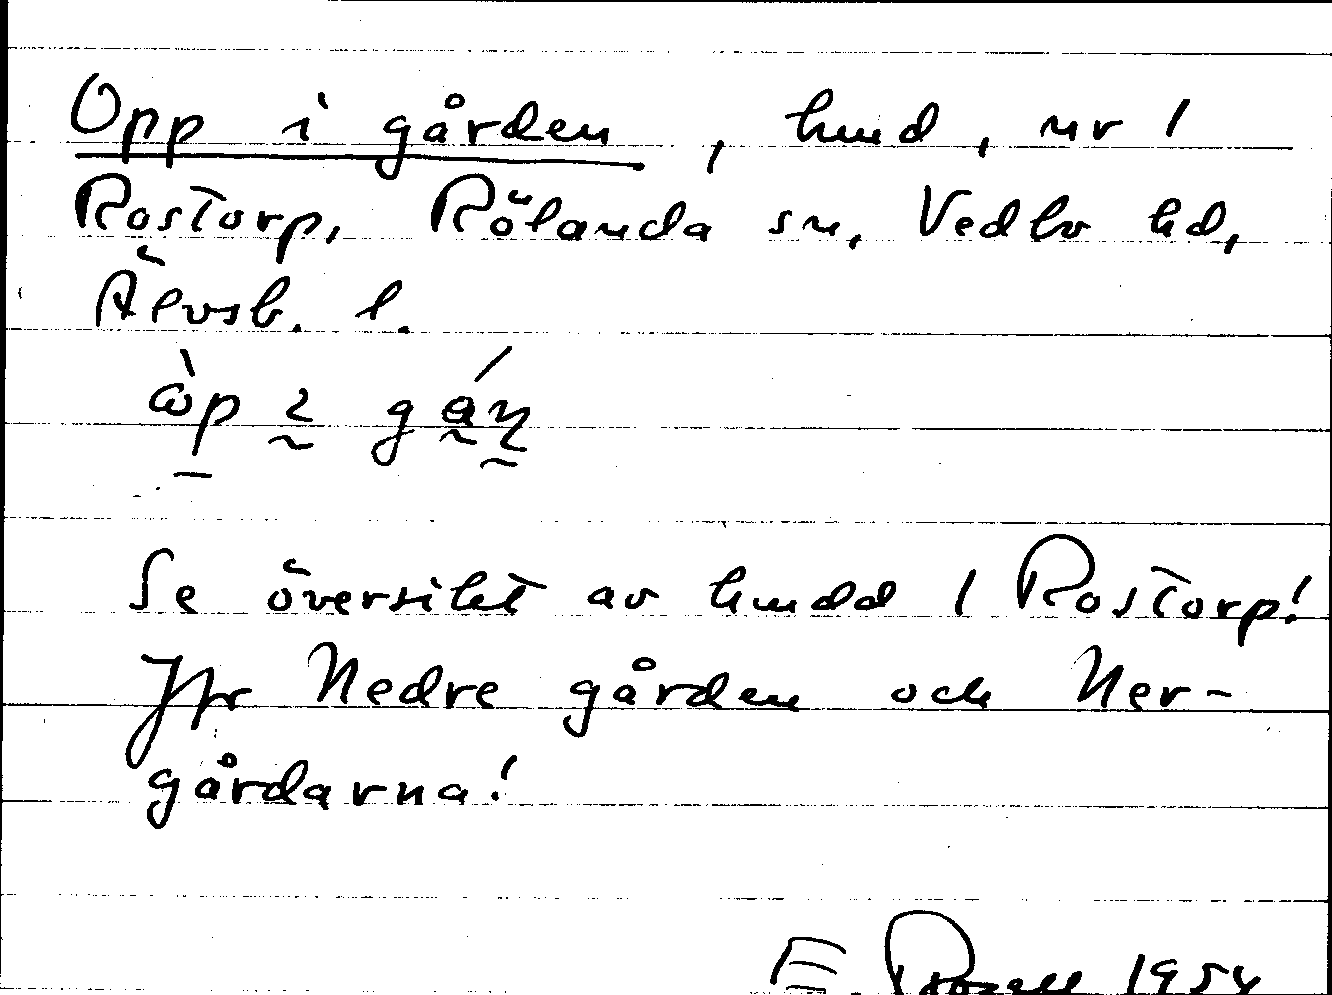 Opp i gården, hmd, nr 1
Rostorp, Rölanda sn, Vedbo hd,
Älvsb. l.
Se översikt av hmdd 1 Rostorp!
Jfr Nedre gården och Ner-
gårdarna!
E. 1954